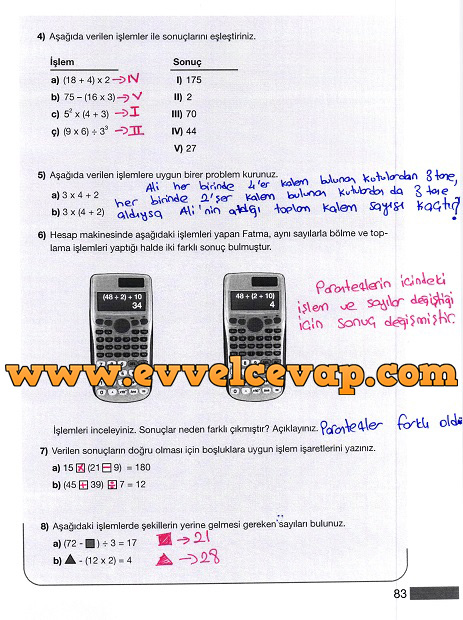 4) Aşağıda verilen işlemler ile sonuçlarını eşleştiriniz.
İşlem Sonuç
a) (18 + 4) x 2 → IV I) 175
b) 75 – (16 x 3) → V II) 2
c) 5² x (4 + 3) → I III) 70
ç) (9 x 6) ÷ 3³ → II IV) 44
V) 27
5) Aşağıda verilen işlemlere uygun birer problem kurunuz.
Ali her birinde 4'er kalem bulunan kutulardan 3 tane,
a) 3 x 4 + 2
her birinde 2'şer kalem bulunan kutulardan da 3 tane
b) 3 x (4 + 2)
aldıysa Ali'nin aldığı toplam kalem sayısı kaçtır?
6) Hesap makinesinde aşağıdaki işlemleri yapan Fatma, aynı sayılarla bölme ve top-
lama işlemleri yaptığı halde iki farklı sonuç bulmuştur.
(48 ÷ 2) + 10
34
48 ÷ (2 + 10)
4
Parantezlerin içindeki
işlem ve sayılar değiştiği
için sonuç değişmiştir.
www.evvelcevap.com
İşlemleri inceleyiniz. Sonuçlar neden farklı çıkmıştır? Açıklayınız. Parantezler farklı
7) Verilen sonuçların doğru olması için boşluklara uygun işlem işaretlerini yazınız.
a) 15 x (21 – 9) = 180
b) (45 + 39) ÷ 7 = 12
8) Aşağıdaki işlemlerde şekillerin yerine gelmesi gereken sayıları bulunuz.
a) (72 - ■) ÷ 3 = 17 ■ → 21
b) ▲ - (12 x 2) = 4 ▲ → 28
83